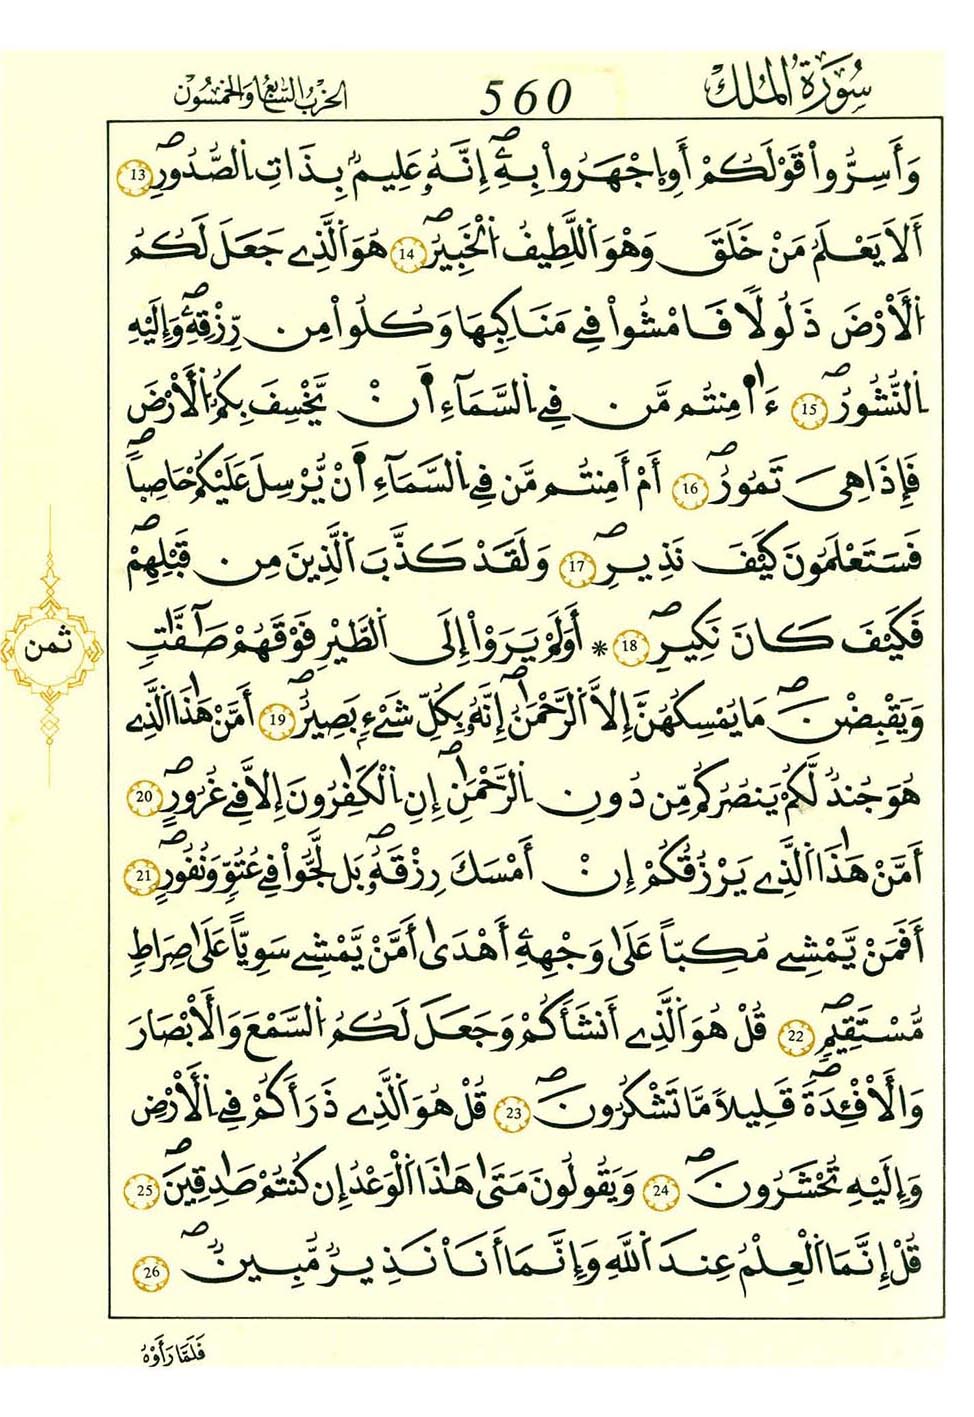 سُورَةُ الْمُلْكِ
560
الحِزْبُ السَّابِعُ وَالخَمْسُونَ
وَأَسِرُّواْ قَوْلَكُمْ أَوِ اِجْهَرُواْ بِهِۦٓۖ إِنَّهُۥ عَلِيمُۢ بِذَاتِ اِ۬لصُّدُورِۖ 13
أَلَا يَعْلَمُ مَنْ خَلَقَ وَهْوَ اَ۬للَّطِيفُ اُ۬لْخَبِيرُۖ 14 هُوَ اَ۬لَّذِے جَعَلَ لَكُمُ
اُ۬لَارْضَ ذَلُولاٗ فَامْشُواْ فِے مَنَاكِبِهَا وَكُلُواْ مِن رِّزْقِهِۦۖ وَإِلَيْهِ
اِ۬لنُّشُورُۖ 15 ءَا۬مِنتُم مَّن فِے اِ۬لسَّمَآءِ اَ۬نْ يَّخْسِفَ بِكُمُ اُ۬لَارْضَ
فَإِذَا هِيَ تَمُورُۖ 16 أَمَ اَمِنتُم مَّن فِے اِ۬لسَّمَآءِ اَ۬نْ يُّرْسِلَ عَلَيْكُمْ حَاصِباٗۖ
فَسَتَعْلَمُونَ كَيْفَ نَذِيرِۖ 17 وَلَقَدْ كَذَّبَ اَ۬لذِينَ مِن قَبْلِهِمْۖ
فَكَيْفَ كَانَ نَكِيرِۖ 18 * أَوَلَمْ يَرَوِاْ اِلَى اَ۬لطَّيْرِ فَوْقَهُمْ صَٰٓفَّٰتٖ
وَيَقْبِضْنَۖ مَا يُمْسِكُهُنَّ إِلَّا اَ۬لرَّحْمَٰنُۖ إِنَّهُۥ بِكُلِّ شَےْءِۢ بَصِيرٌۖ 19 أَمَّنْ هَٰذَا اَ۬لذِے
هُوَ جُندٞ لَّكُمْ يَنصُرُكُم مِّن دُونِ اِ۬لرَّحْمَٰنِۖ إِنِ اِ۬لْكَٰفِرُونَ إِلَّا فِے غُرُورٍۖ 20
أَمَّنْ هَٰذَا اَ۬لذِے يَرْزُقُكُمُ إِنَ اَمْسَكَ رِزْقَهُۥۖ بَل لَّجُّواْ فِے عُتُوّٖ وَنُفُورٍۖ 21
أَفَمَنْ يَّمْشِے مُكِبّاً عَلَىٰ وَجْهِهِۦٓ أَهْدَىٰٓ أَمَّنْ يَّمْشِے سَوِيّاً عَلَىٰ صِرَٰطٖ
مُّسْتَقِيمٖۖ 22 قُلْ هُوَ اَ۬لذِےٓ أَنشَأَكُمْ وَجَعَلَ لَكُمُ اُ۬لسَّمْعَ وَالَابْصَٰرَ
وَالَافْـِٕدَةَۖ قَلِيلاٗ مَّا تَشْكُرُونَۖ 23 قُلْ هُوَ اَ۬لذِے ذَرَأَكُمْ فِے اِ۬لَارْضِ
وَإِلَيْهِ تُحْشَرُونَۖ 24 وَيَقُولُونَ مَتَىٰ هَٰذَا اَ۬لْوَعْدُ إِن كُنتُمْ صَٰدِقِينَۖ 25
قُلِ اِنَّمَا اَ۬لْعِلْمُ عِندَ اَ۬للَّهِ وَإِنَّمَآ أَنَا نَذِيرٞ مُّبِينٞۖ 26
ثمن
فَلَمَّا رَأَوْهُ